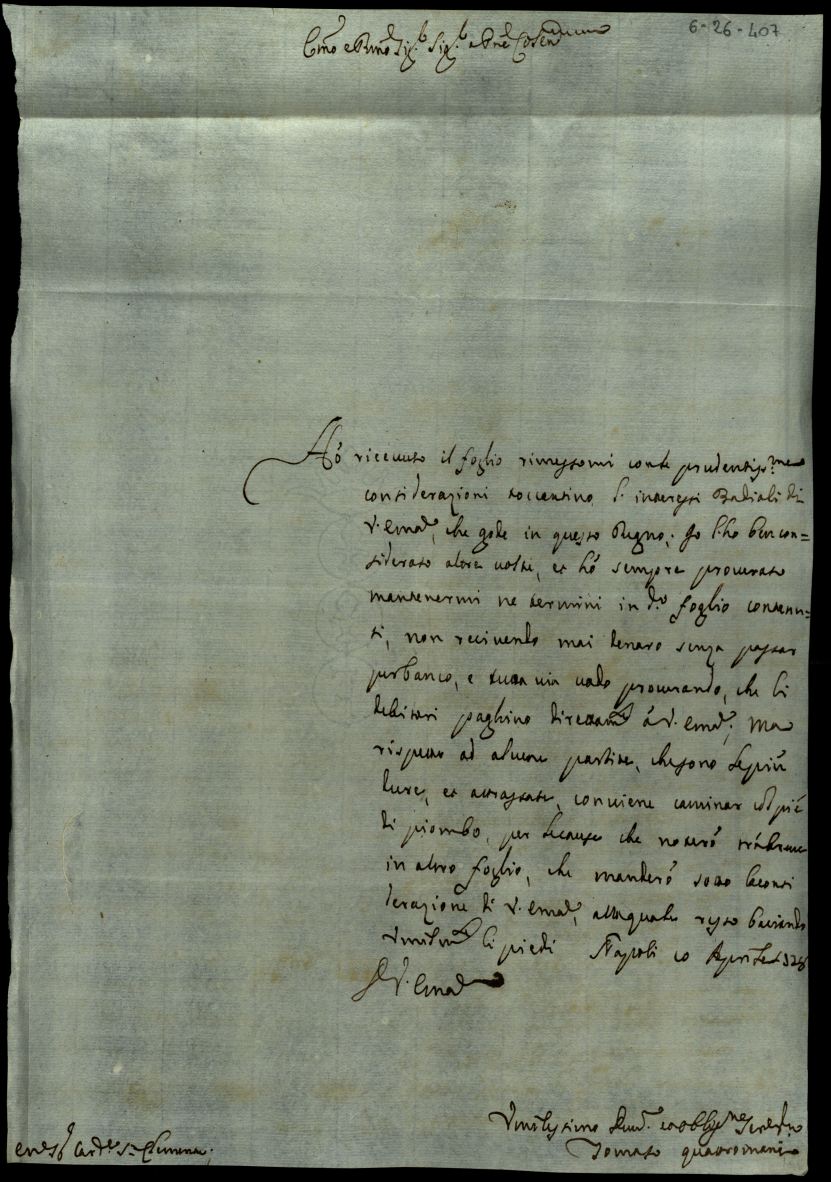 6-26-407
Emo e Rmo Sig.r Sig.r e Pne Colen
Hó riceuuto il foglio rimessomi con le prudentiss.me
considerazioni toccantino l'interessi Badiali di
V. Emza, che gode in questo Regno; Io l'hò ben con=
siderato altre uolte, et hó sempre procurato
mantenermi ne termini in d.o foglio contenu=
ti, non recivendo mai denaro senza passar
per banco, e tutta uia uado procurando, che li
debitori paghino direttam.te á V. Emza; Ma
rispetto ad alcune partite, che sono le più
dure, et attrassate, conuiene caminar col pié
di piombo, per le cause che noteró trà breve
in altro foglio, che manderó sotto la consi
derazione di V. Emza, alla quale resto baciando
Vmilm.te li piedi Napoli 10 Aprile
D V. Emza
Vmilissimo Diu.mo et obblig.mo Seru.re
Tomaso quattromani
Card.le S. Clemente;